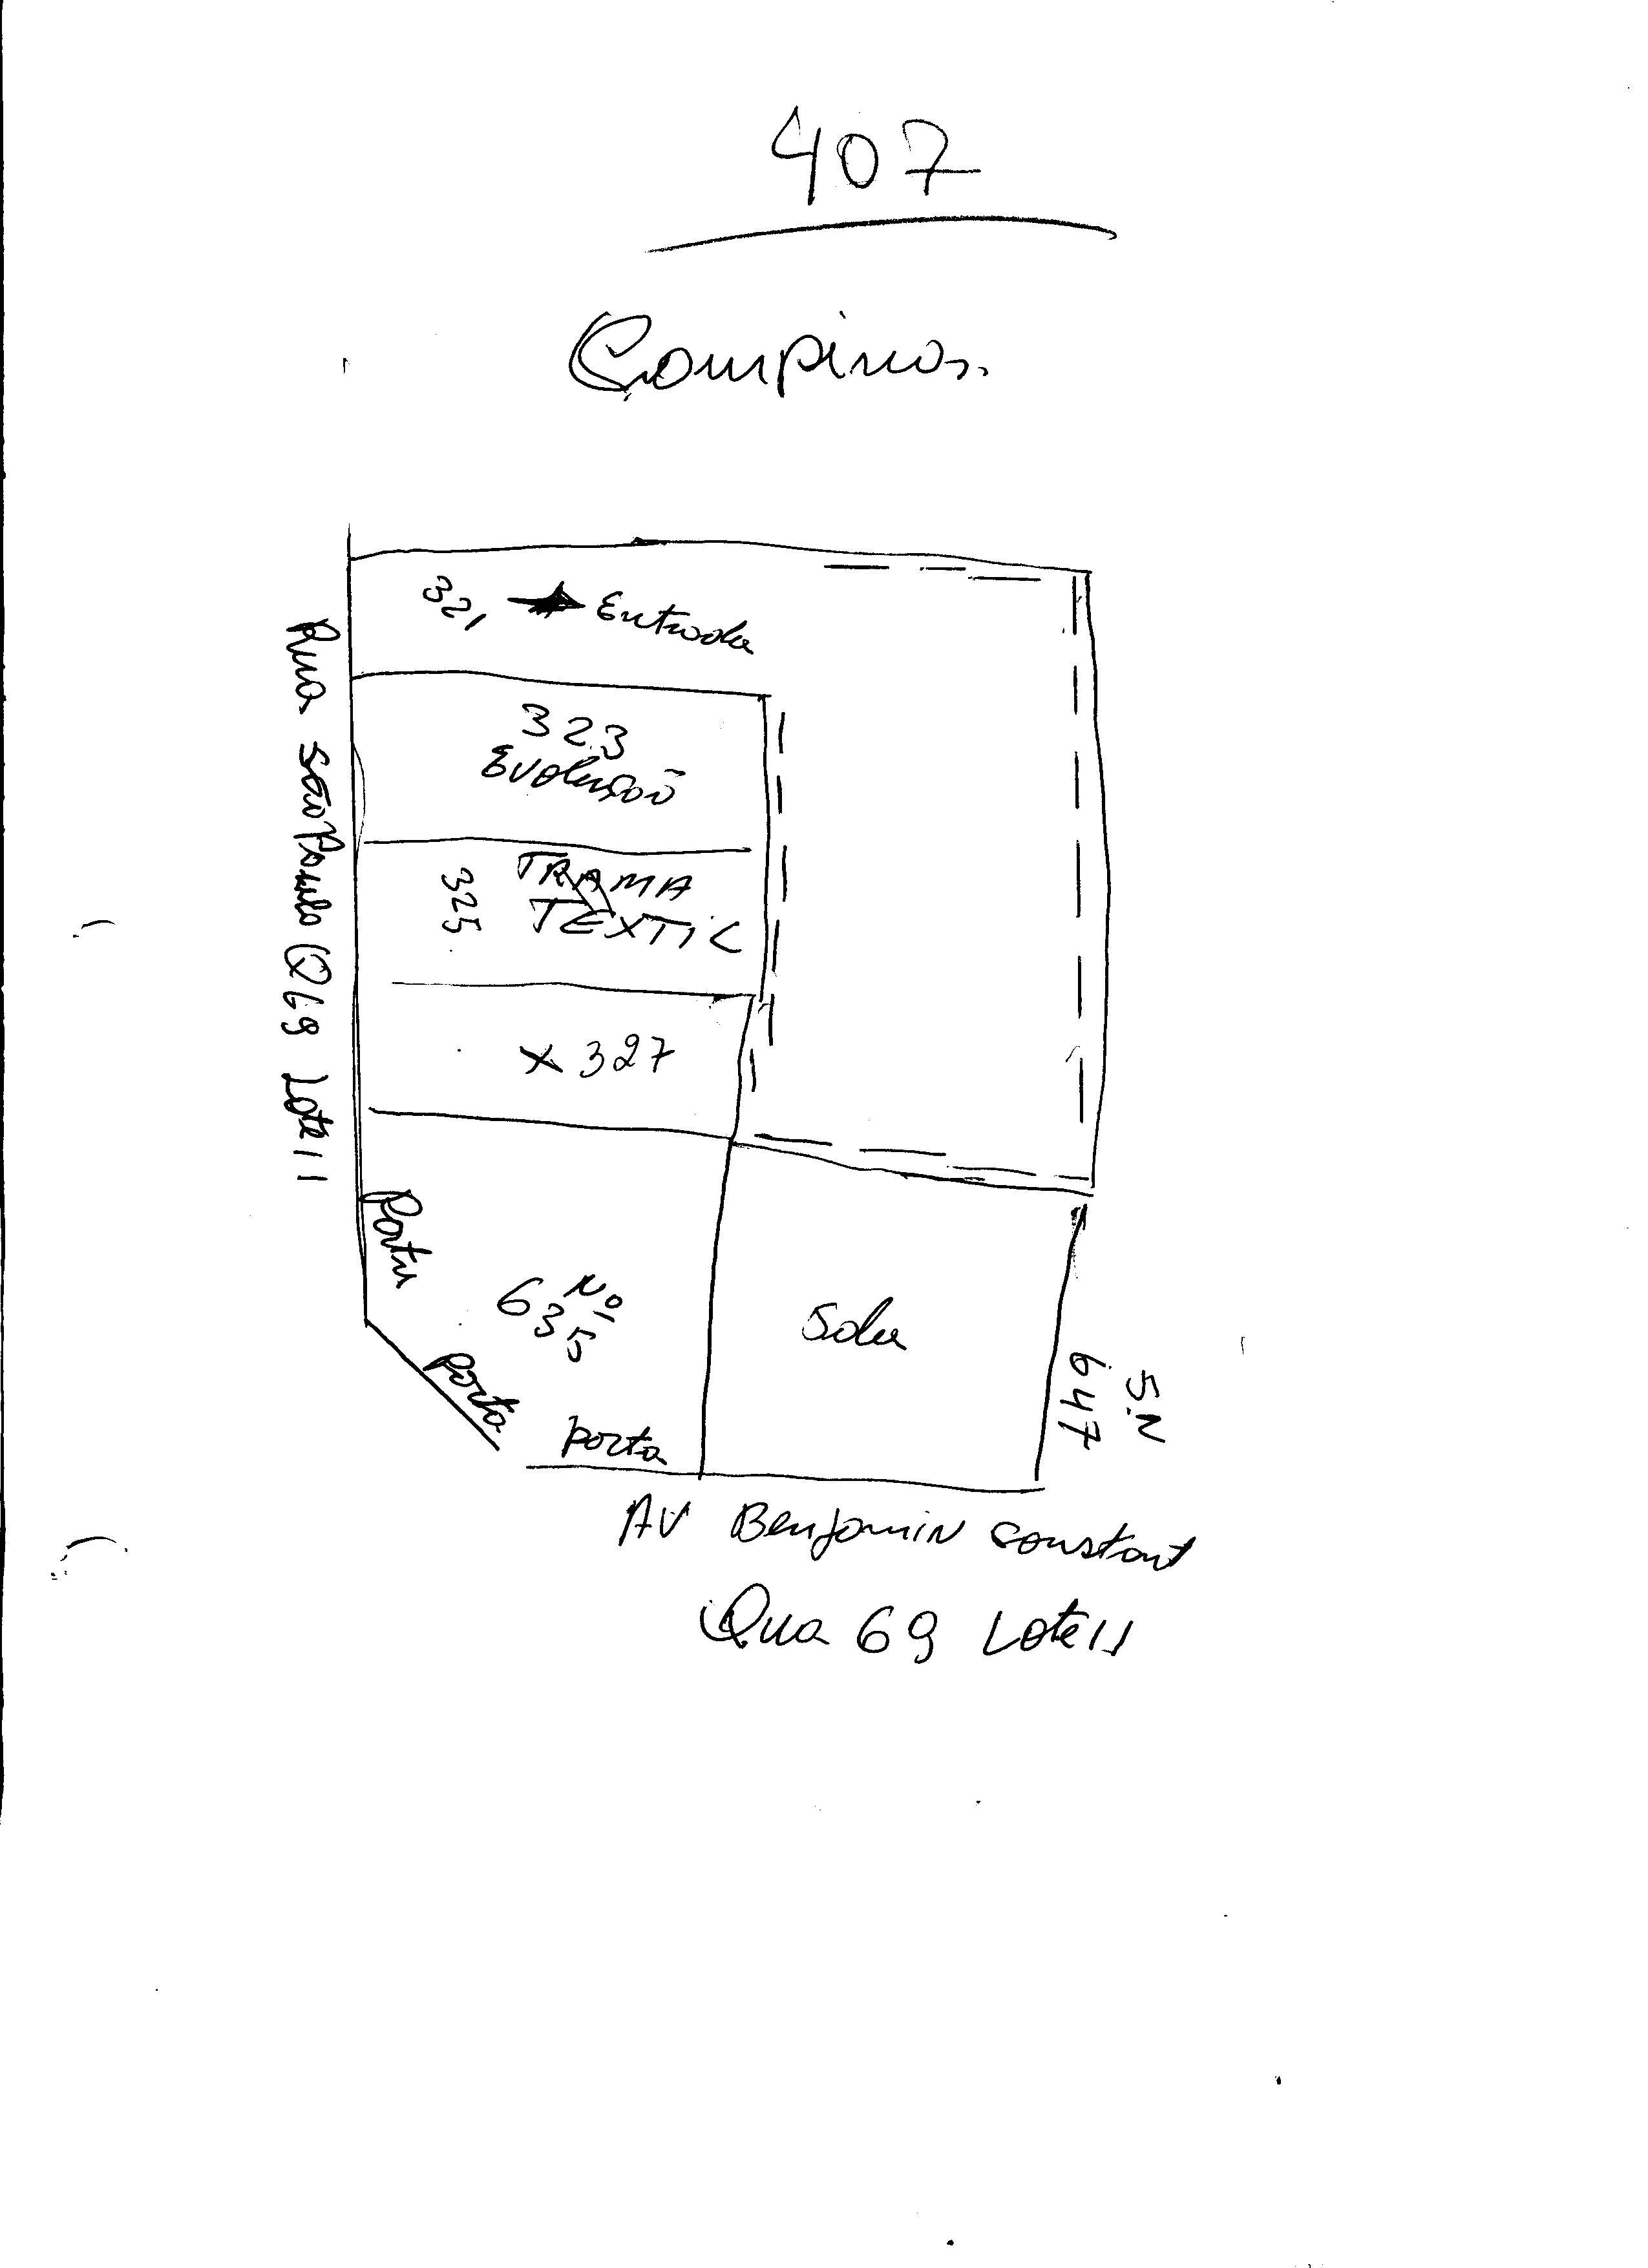 407
Campinas.
321 Entrada
323
Evolusão
325
TRAMA
TEXTIL
X 327
Rua são Paulo Q 69 Lote 11
Porta
Nº
635
porta
porta
Sala
S.N
647
AV Benjamin constant
Qua 69 Lote 11